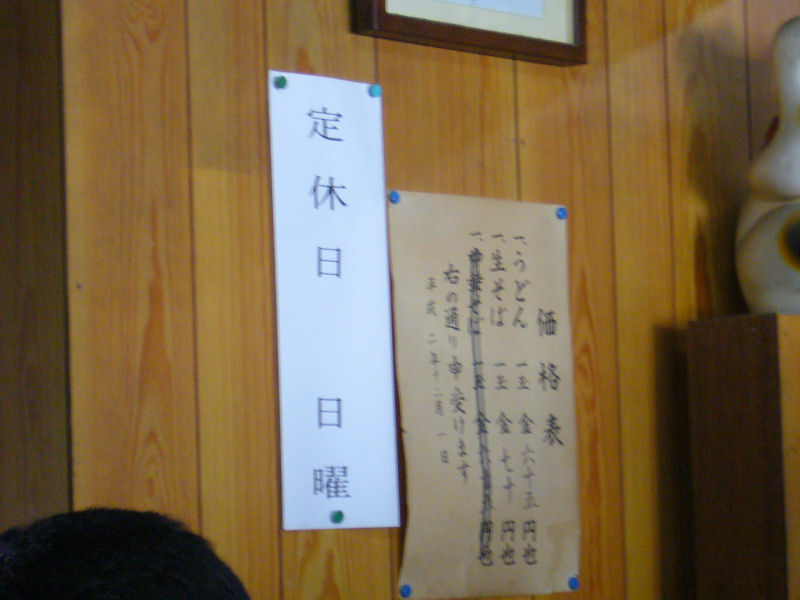 定休日 日曜
価格表
一、うどん 一玉 金六十五円也
一、生そば 一玉 金七十円也
一、中華そば 一玉 金六十五円也
右の通り申受けます
平成二年十二月一日